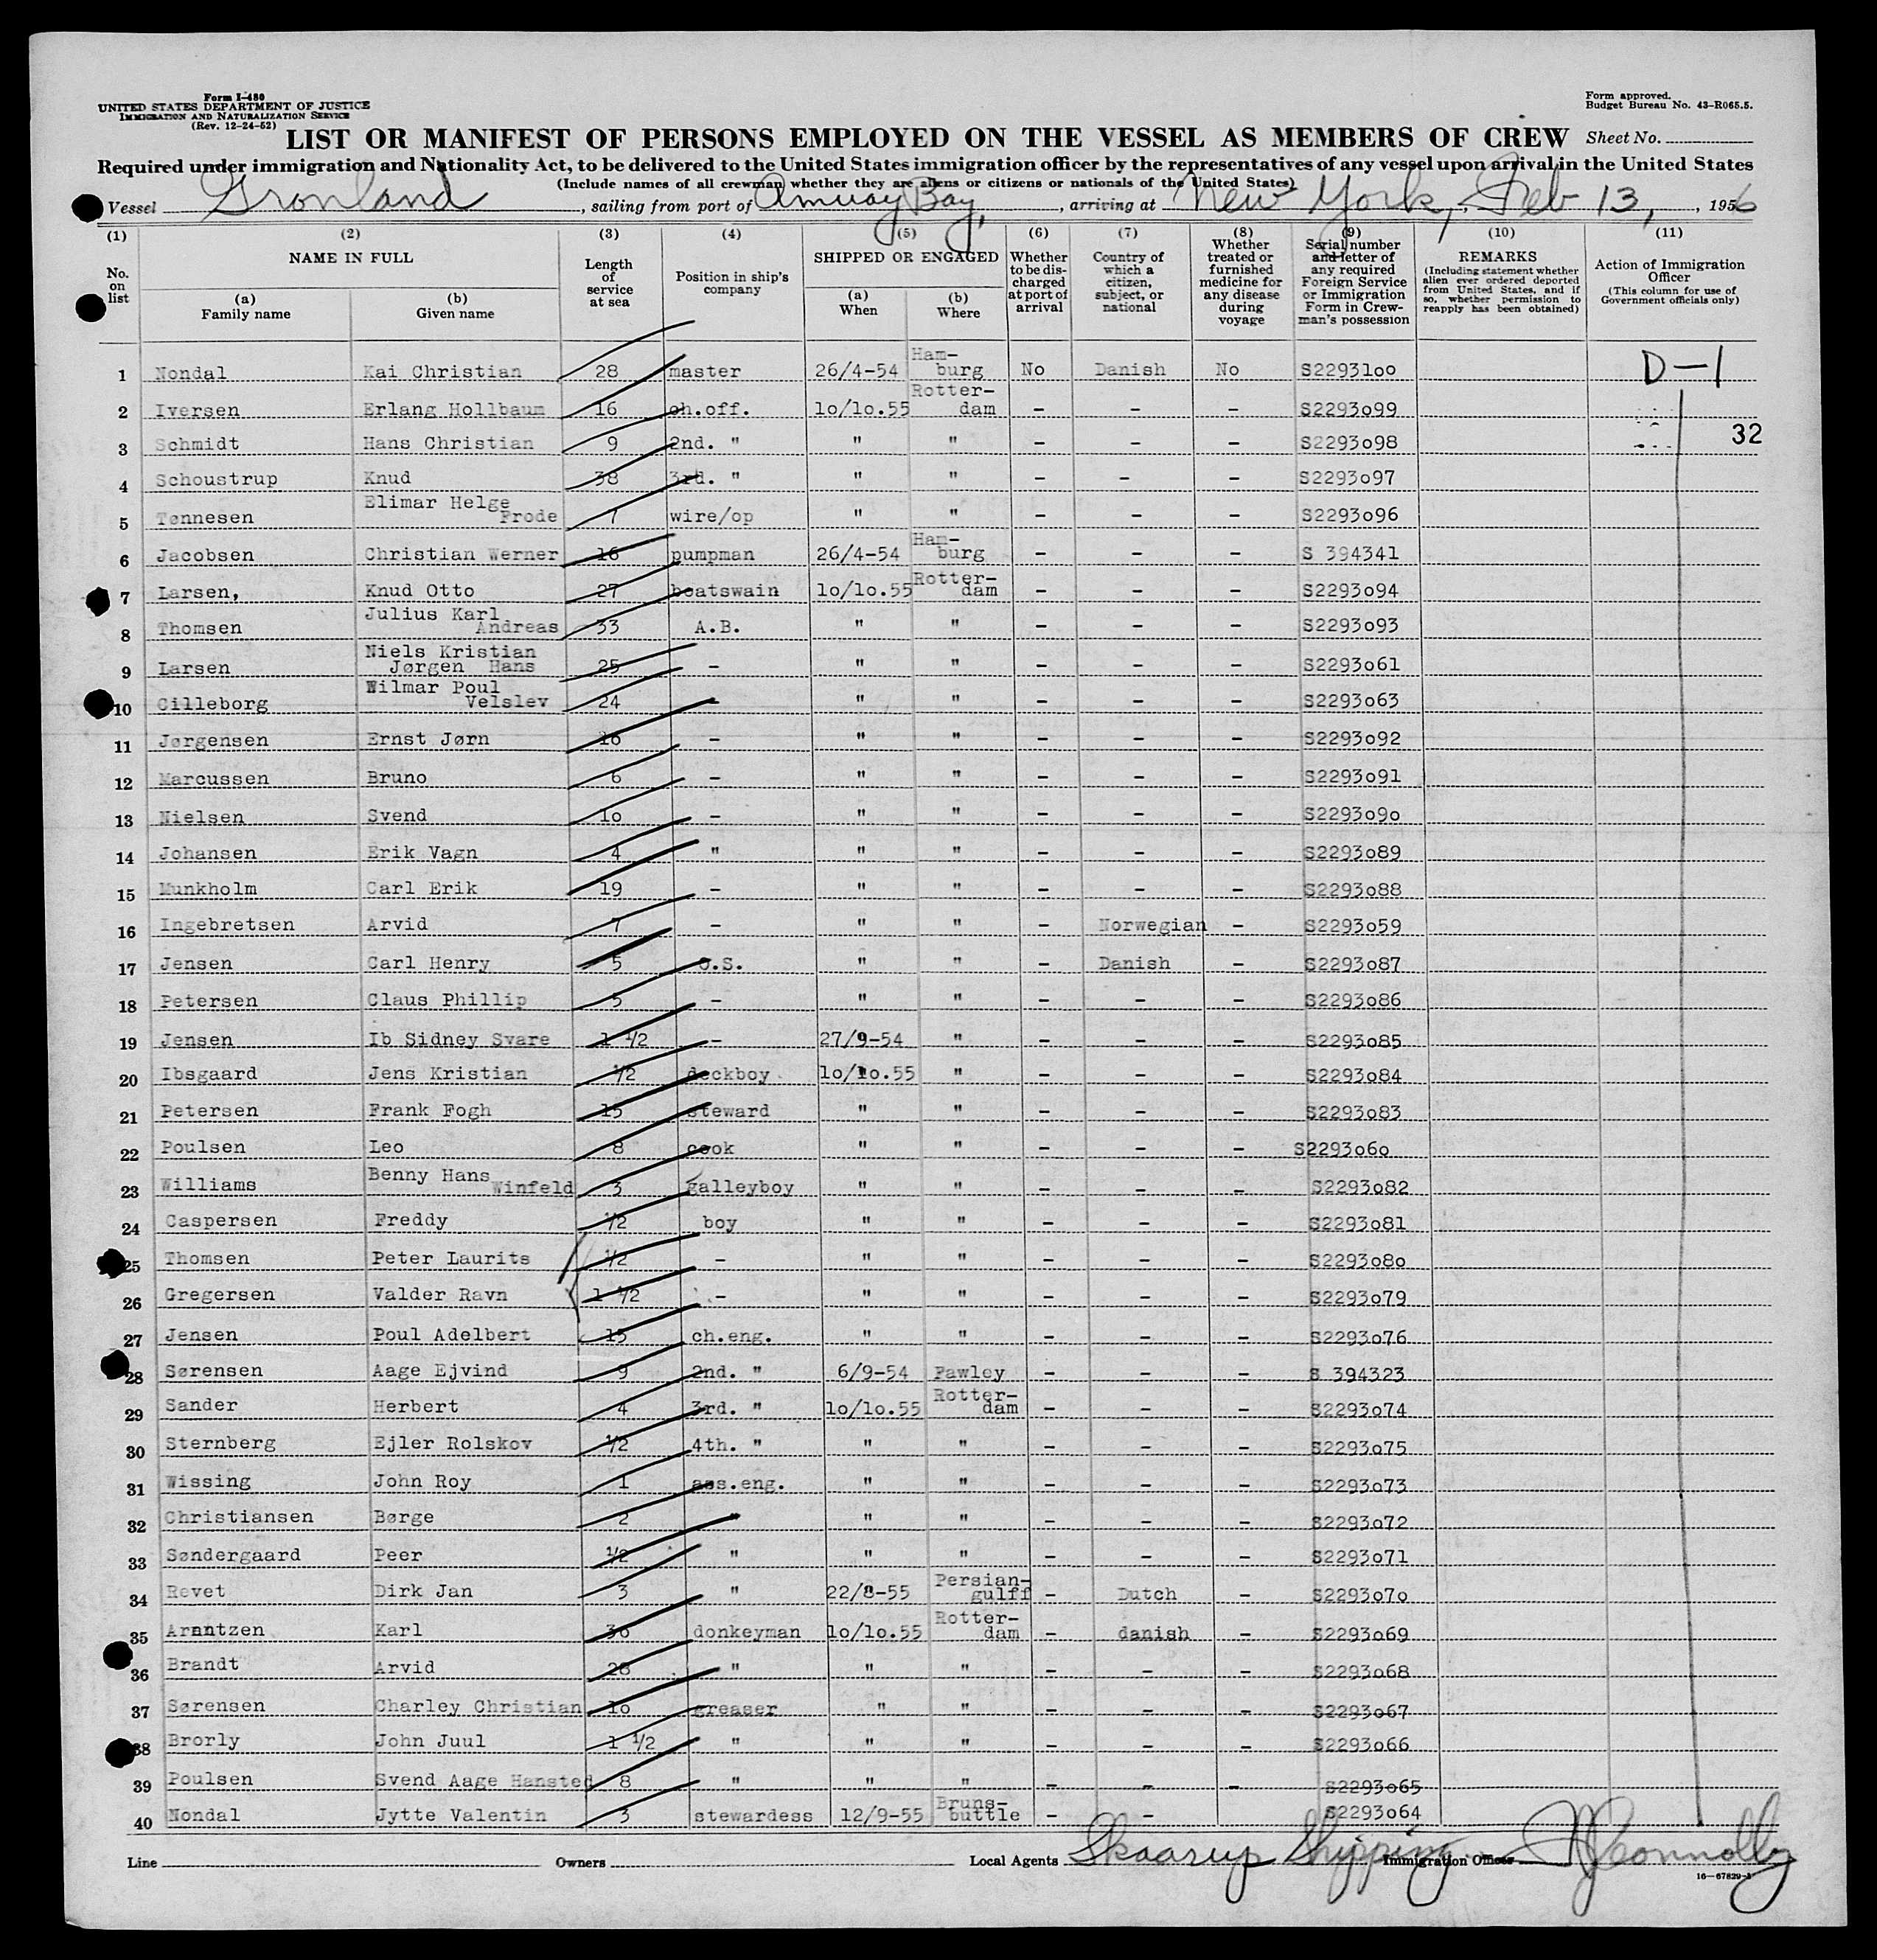 Form I-480
UNITED STATES DEPARTMENT OF JUSTICE
IMMIGRATION AND NATURALIZATION SERVICE
(Rev. 12-24-52)
Form approved.
Budget Bureau No. 43-R065.5.
LIST OR MANIFEST OF PERSONS EMPLOYED ON THE VESSEL AS MEMBERS OF CREW Sheet No.
Required under immigration and Nationality Act, to be delivered to the United States immigration officer by the representatives of any vessel upon arrival in the United States
(Include names of all crewman whether they are aliens or citizens or nationals of the United States)
Vessel Gronland, sailing from port of Amuay Bay, arriving at New York, Feb 13, 1956
(1) No. on list
(2) NAME IN FULL (a) Family name (b) Given name
(3) Length of service at sea
(4) Position in ship's company
(5) SHIPPED OR ENGAGED (a) When (b) Where
(6) Whether to be discharged at port of arrival
(7) Country of which a citizen, subject, or national
(8) Whether treated or furnished medicine for any disease during voyage
(9) Serial number and letter of any required Foreign Service or Immigration Form in Crewman's possession
(10) REMARKS (Including statement whether alien ever ordered deported from United States, and if so, whether permission to reapply has been obtained)
(11) Action of Immigration Officer (This column for use of Government officials only)
1 Nondal Kai Christian 28 master 26/4-54 Ham-burg No Danish No S2293loo D-1
2 Iversen Erlang Hollbaum 16 ch.off. lo/lo.55 Rotter-dam - - - S2293o99
3 Schmidt Hans Christian 9 2nd. " " " - - - S2293o98 32
4 Schoustrup Knud 38 3rd. " " " - - - S2293o97
5 Tønnesen Elimar Helge Frode 7 wire/op " " - - - S2293o96
6 Jacobsen Christian Werner 16 pumpman 26/4-54 Ham-burg - - - S 394341
7 Larsen, Knud Otto 27 boatswain lo/lo.55 Rotter-dam - - - S2293o94
8 Thomsen Julius Karl Andreas 33 A.B. " " - - - S2293o93
9 Larsen Niels Kristian Jørgen Hans 25 - " " - - - S2293o61
10 Cilleborg Wilmar Poul Velslev 24 - " " - - - S2293o63
11 Jørgensen Ernst Jørn 16 - " " - - - S2293o92
12 Marcussen Bruno 6 - " " - - - S2293o91
13 Nielsen Svend lo - " " - - - S2293o9o
14 Johansen Erik Vagn 4 " " " - - - S2293o89
15 Munkholm Carl Erik 19 - " " - - - S2293o88
16 Ingebretsen Arvid 7 - " " - Norwegian - S2293o59
17 Jensen Carl Henry 5 O.S. " " - Danish - S2293o87
18 Petersen Claus Phillip 5 - " " - - - S2293o86
19 Jensen Ib Sidney Svare 1 1/2 - 27/9-54 " - - - S2293o85
20 Ibsgaard Jens Kristian 1/2 deckboy lo/lo.55 " - - - S2293o84
21 Petersen Frank Fogh 15 steward " " - - - S2293o83
22 Poulsen Leo 8 cook " " - - - S2293o6o
23 Williams Benny Hans Winfeld 3 galleyboy " " - - - S2293o82
24 Caspersen Freddy 1/2 boy " " - - - S2293o81
25 Thomsen Peter Laurits 1/2 - " " - - - S2293o8o
26 Gregersen Valder Ravn 1 1/2 - " " - - - S2293o79
27 Jensen Poul Adelbert 15 ch.eng. " " - - - S2293o76
28 Sørensen Aage Ejvind 9 2nd. " 6/9-54 Fawley - - - S 394323
29 Sander Herbert 4 3rd. " lo/lo.55 Rotter-dam - - - S2293o74
30 Sternberg Ejler Rolskov 1/2 4th. " " " - - - S2293o75
31 Wissing John Roy 1 ass.eng. " " - - - S2293o73
32 Christiansen Børge 2 " " " - - - S2293o72
33 Søndergaard Peer 1/2 " " " - - - S2293o71
34 Revet Dirk Jan 3 " 22/8-55 Persian-gulff - Dutch - S2293o7o
35 Arnntzen Karl 36 donkeyman lo/lo.55 Rotter-dam - danish - S2293o69
36 Brandt Arvid 28 " " " - - - S2293o68
37 Sørensen Charley Christian lo greaser " " - - - S2293o67
38 Brorly John Juul 1 1/2 " " " - - - S2293o66
39 Poulsen Svend Aage Hansted 8 " " " - - - S2293o65
40 Nondal Jytte Valentin 3 stewardess 12/9-55 Bruns-buttle - - S2293o64
Line Owners Local Agents Skaarup Shipping Immigration Officer J Connolly
16-67829-1